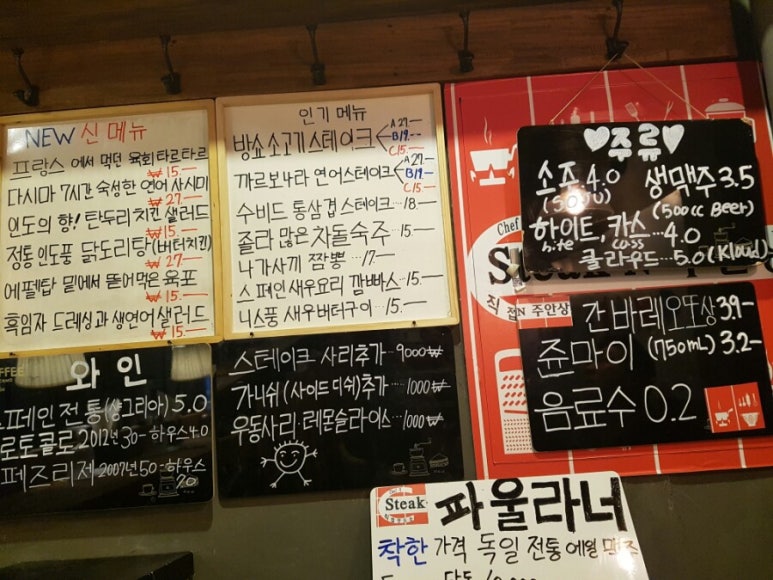 NEW 신메뉴
프랑스에서 먹던 육회타르타르
₩15.—
다시마 7시간 숙성한 연어사시미
₩27—
인도의 향! 탄두리 치킨 샐러드
₩15.—
정통 인도풍 닭도리탕(버터치킨)
₩27—
에펠탑 밑에서 뜯어먹은 육포
₩15.—
흑임자 드레싱과 생연어샐러드
₩15—
인기메뉴
방쇼소고기스테이크
A 27.—
B 19.—
C 15.—
까르보나라 연어스테이크
A 27—
B 19—
C 15—
수비드 통삼겹 스테이크...18.—
졸라 많은 차돌숙주...15.—
나가사끼 짬뽕...17—
스페인새우요리 감빠스...15.—
니스풍 새우버터구이...15.—
와인
스페인전통(샹그리아) 5.0
로토콜로 2012년 30-하우스 4.0
페즈리제 2007년 50-하우스 7.0
스테이크 사리추가...9000₩
가니쉬(사이드디쉬)추가...1000₩
우동사리·레몬슬라이스...1000₩
♥주류♥
소주 4.0
(SOJU)
생맥주 3.5
(500cc Beer)
하이트, 카스...4.0
hite cass
클라우드...5.0 (Kloud)
Chef
직접N 주안상
간바레오또상 3.9-
쥰마이 (750mL) 3.2-
음료수 0.2
Steak
파울라너
착한 가격 독일 전통 에일 맥주